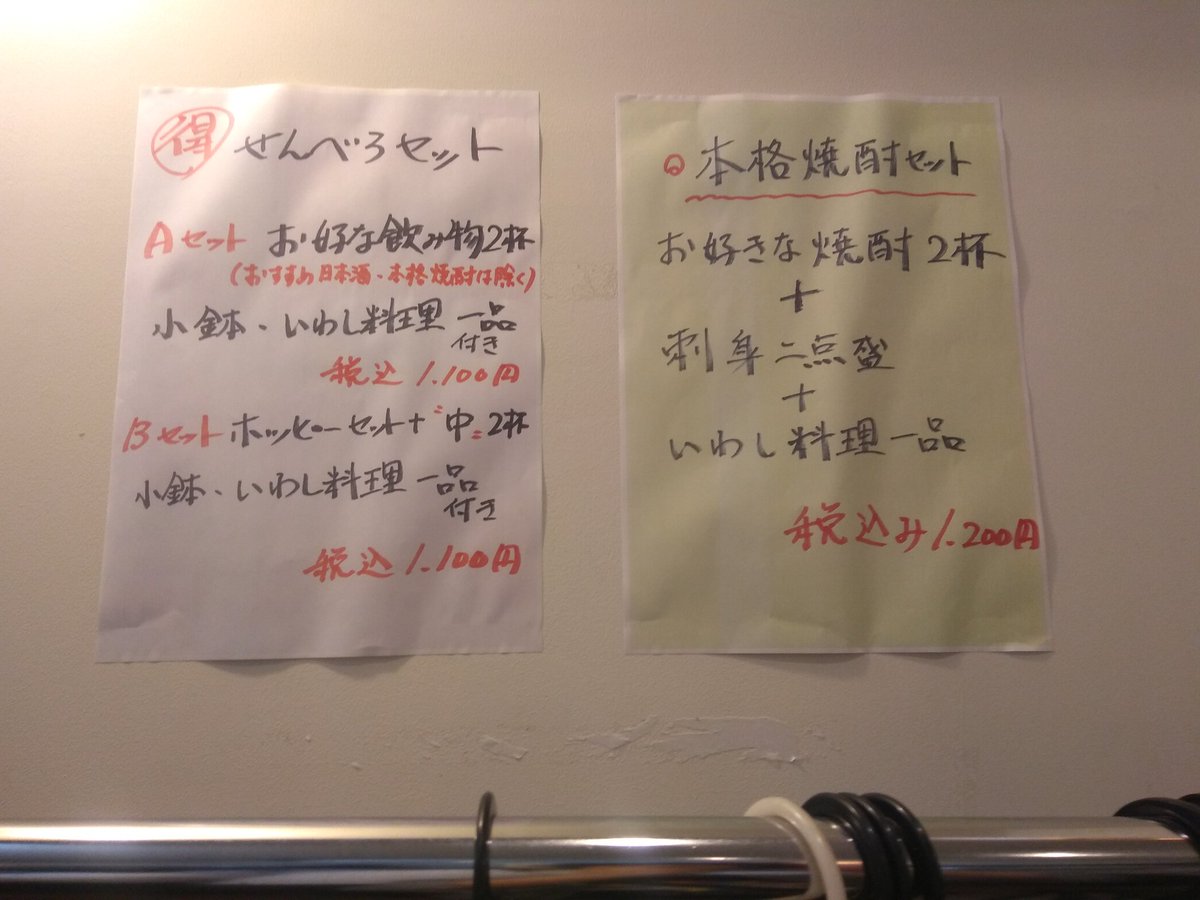 得 せんべろセット
Aセット お好な飲み物2杯
(おすすめ日本酒・本格焼酎は除く)
小鉢・いわし料理一品
付き
税込 1.100円
Bセット ホッピーセット+〝中〟2杯
小鉢・いわし料理一品
付き
税込 1.100円
◎本格焼酎セット
お好きな焼酎2杯
+
刺身二点盛
+
いわし料理一品
税込み1.200円